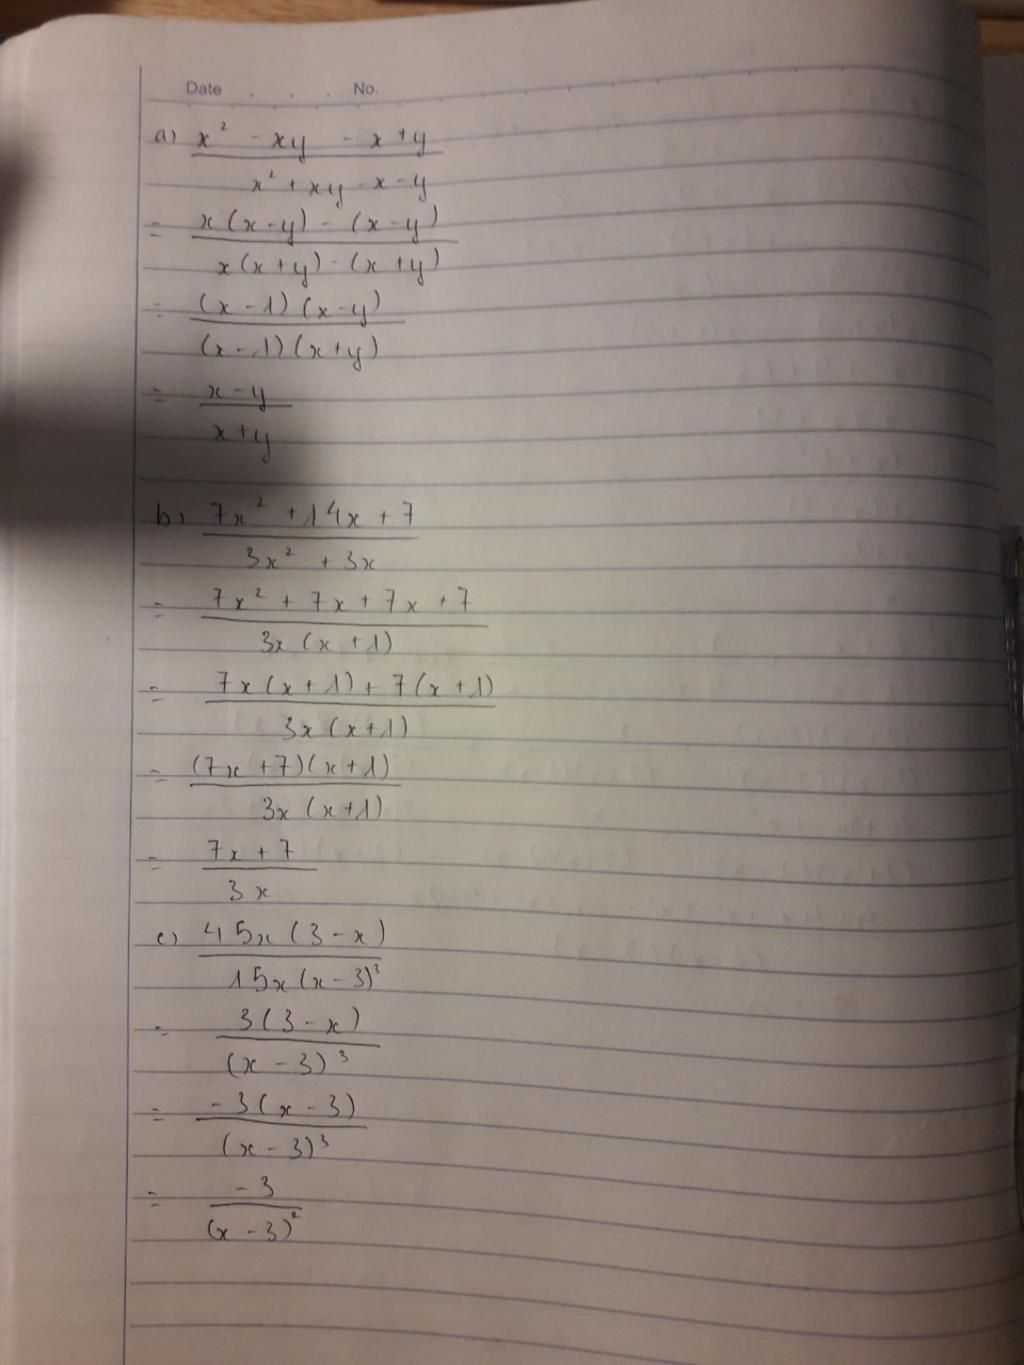 Date . . . No.
a) x² - xy - x + y
x² + xy - x - y
= x(x - y) - (x - y)
x(x + y) - (x + y)
= (x - 1)(x - y)
(x - 1)(x + y)
= x - y
x + y
b) 7x² + 14x + 7
3x² + 3x
= 7x² + 7x + 7x + 7
3x (x + 1)
= 7x(x + 1) + 7(x + 1)
3x (x + 1)
= (7x + 7)(x + 1)
3x (x + 1)
= 7x + 7
3x
c) 45x (3 - x)
15x (x - 3)³
= 3(3 - x)
(x - 3)³
= -3(x - 3)
(x - 3)³
= -3
(x - 3)²